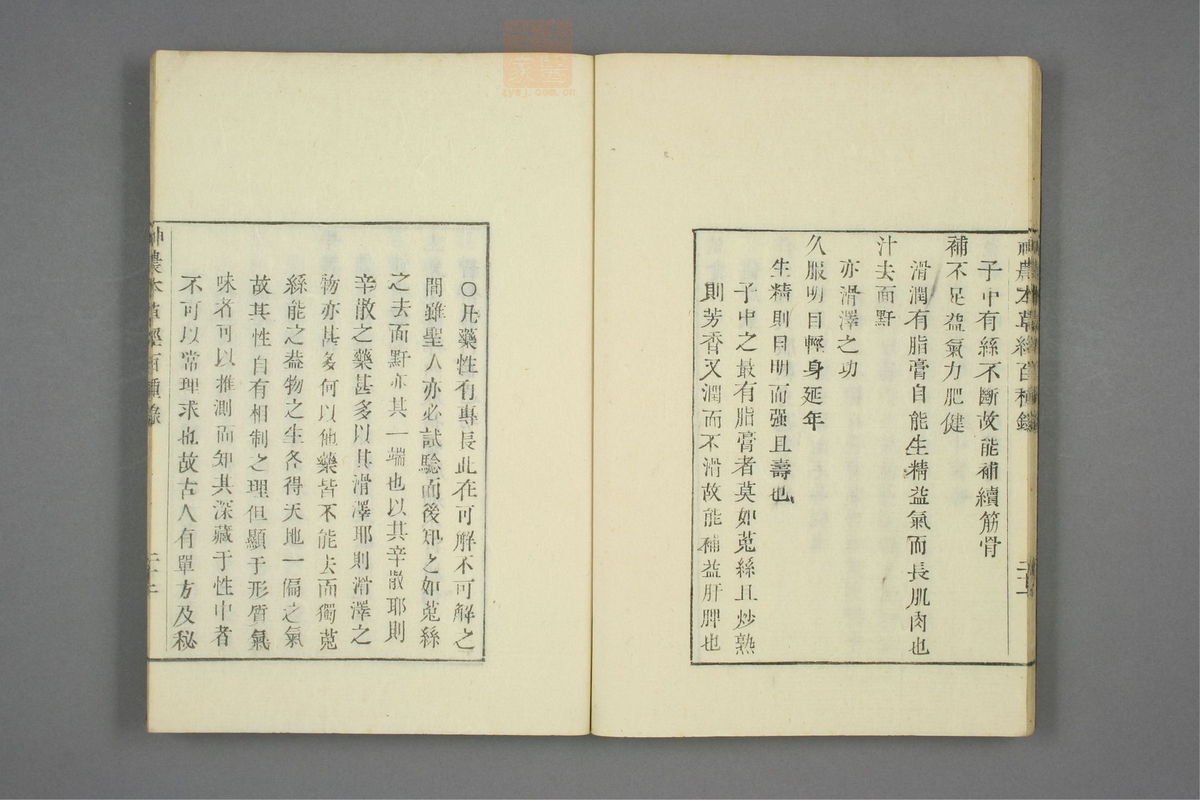 神農本草經百種錄
子中有絲不斷故能補續筋骨
補不足益氣力肥健
滑潤有脂膏自能生精益氣而長肌肉也
汁去面䵟
亦滑澤之功
久服明目輕身延年
生精則目明而强且壽也
子中之最有脂膏者莫如菟絲且炒熟
則芳香又潤而不滑故能補益肝脾也
○凡藥性有專長此在可解不可解之
間雖聖人亦必試驗而後知之如菟絲
之去面䵟亦其一端也以其辛散耶則
辛散之藥甚多以其滑澤耶則滑澤之
物亦甚多何以他藥皆不能去而獨菟
絲能之葢物之生各得天地一偏之氣
故其性自有相制之理但顯于形質氣
味者可以推測而知其深藏于性中者
不可以常理求也故古人有單方及秘
神農本草經百種錄
zysj.com.cn